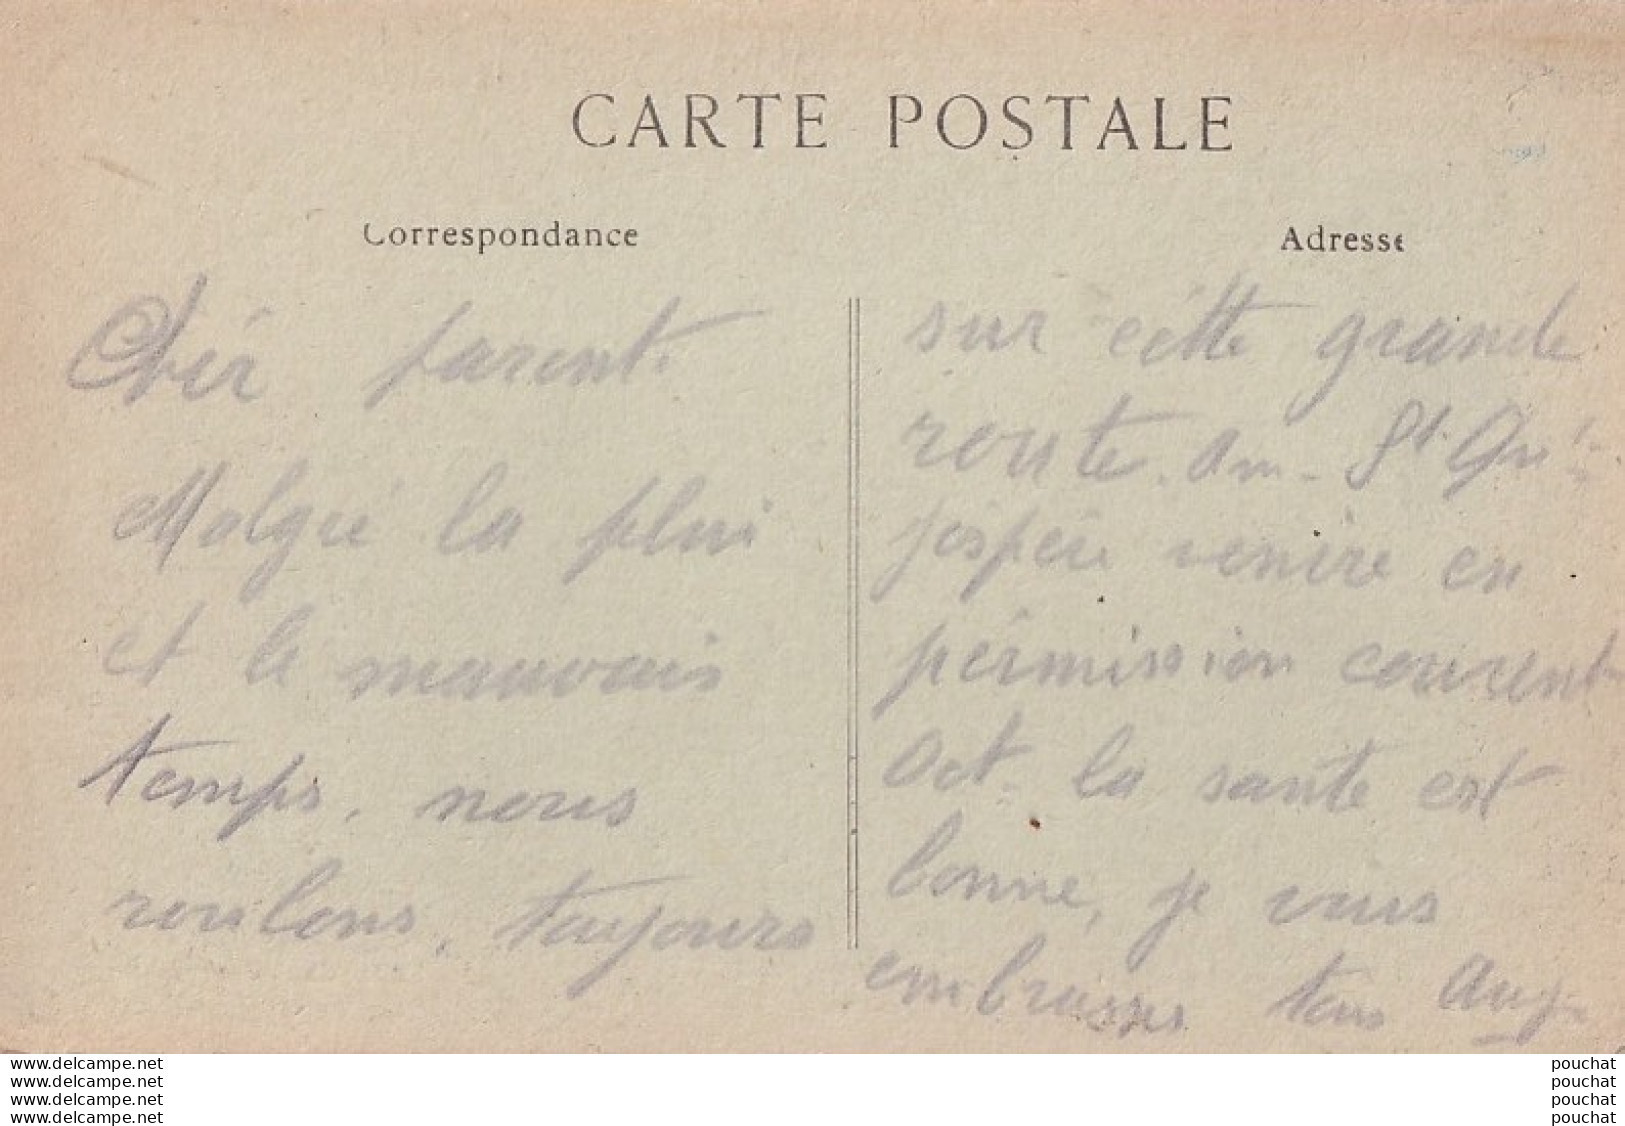 CARTE POSTALE
Correspondance
Adresse
Chér parent.
Malgré la plui
et le mauvais
temps, nous
roulons, toujours
sur cétte grande
route. Am - St. Qu
j'éspére venire en
pérmission courent
Oct. la santé est
bonne, je vous
embrasses tous Aug.
www.delcampe.net
www.delcampe.net
www.delcampe.net
www.delcampe.net
pouchat
pouchat
pouchat
pouchat